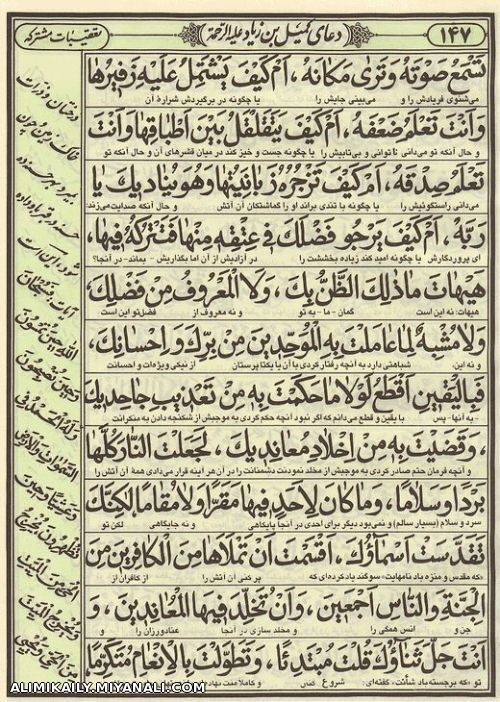 ۱۴۷
دعای کمیل بن زیاد علیه الرحمة
تعقیبات مشترکه
تَسْمَعُ صَوْتَهُ وَتَرى مَكانَهُ، اَمْ كَيْفَ يَشْتَمِلُ عَلَيْهِ زَفيرُها
می‌شنوی فریادش را و می‌بینی جایش را یا چگونه در برگیردش شرارهٔ آن
وَاَنْتَ تَعْلَمُ ضَعْفَهُ، اَمْ كَيْفَ يَتَقَلْقَلُ بَيْنَ اَطْباقِها وَاَنْتَ
و حال آنکه تو می‌دانی ناتوانی و بی‌تابیش را یا چگونه جست و خیز کند در میان قشرهای آن و حال آنکه تو
تَعْلَمُ صِدْقَهُ، اَمْ كَيْفَ تَزْجُرُهُ زَبانِيَتُها وَهُوَ يُناديكَ يا
می‌دانی راستگوئیش را یا چگونه با تندی براند او را گماشتگان آن آتش و حال آنکه صدایت می‌زند:
رَبَّهُ، اَمْ كَيْفَ يَرْجُو فَضْلَكَ فى عِتْقِهِ مِنْها فَتَتْرُكُهُ فيها،
ای پروردگارش یا چگونه امید کند زیاده بخششت را در آزادیش از آن اما بگذاریش - بماند - در آنجا؟
هَيْهاتَ ماذلِكَ الظَّنُّ بِكَ، وَلاَ الْمَعْرُوفُ مِنْ فَضْلِكَ،
هیهات: نه این است گمان - ما - به تو و نه معروف از فضل تو این است
وَلا مُشْبِهٌ لِما عامَلْتَ بِهِ الْمُوَحِّدينَ مِنْ بِرِّكَ وَاِحْسانِكَ،
و نه این شباهتی دارد به آنچه رفتار کردی با آن با یکتا پرستان از نیکی ویژه‌ات و احسانت
فَبِالْيَقينِ اَقْطَعُ لَوْلا ماحَكَمْتَ بِهِ مِنْ تَعْذيبِ جاحِديكَ
- به آنها - پس با یقین و قطع می‌دانم که اگر نبود آنچه حکم کردی به موجبش از شکنجه دادن به منکرانت
، وَقَضَيْتَ بِهِ مِنْ اِخْلادِ مُعانِديكَ، لَجَعَلْتَ النّارَ كُلَّها
و آنچه فرمان حتم صادر کردی به موجبش از مخلد نمودنت دشمنانت را در آن هر اینه قرار می‌دادی همهٔ آن آتش را
بَرْداً وَسَلاماً، وَما كانَ لِاَحَدٍ فيها مَقَرّاً وَلا مُقاماً لكِنَّكَ
سرد و سلام (بسیار سالم) و نمی‌بود دیگر برای احدی در آنجا پایگاهی و نه جایگاهی لکن تو
تَقَدَّسَتْ اَسْماؤُكَ، اَقْسَمْتَ اَنْ تَمْلَاَها مِنَ الْكافِرينَ مِنَ
- که مقدس و منزه باد نامهایت - سوگند یاد کرده‌ای که پر کنی آن آتش را از کافران از
الْجِنَّةِ وَالنّاسِ اَجْمَعينَ، وَاَنْ تُخَلِّدَ فيهَا الْمُعانِدينَ، وَ
جن و انس همگی را و مخلد سازی در آنجا عنادورزان را و
اَنْتَ جَلَّ ثَناؤُكَ قُلْتَ مُبْتَدِئاً، وَتَطَوَّلْتَ بِالْاِنْعامِ مُتَكَرِّماً
تو، - که برجسته باد شأنت، گفته‌ای: شروع کنی
ALIMIKAILY.MIYANALI.COM